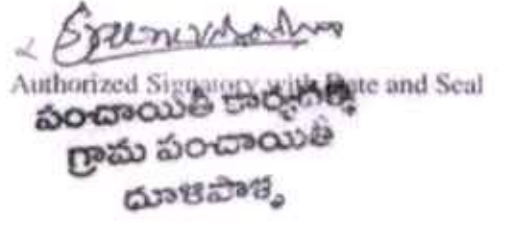 Authorized Signatory with Date and Seal
పంచాయితీ కార్యదర్శి
గ్రామ పంచాయితీ
ధూళిపాళ్ళ